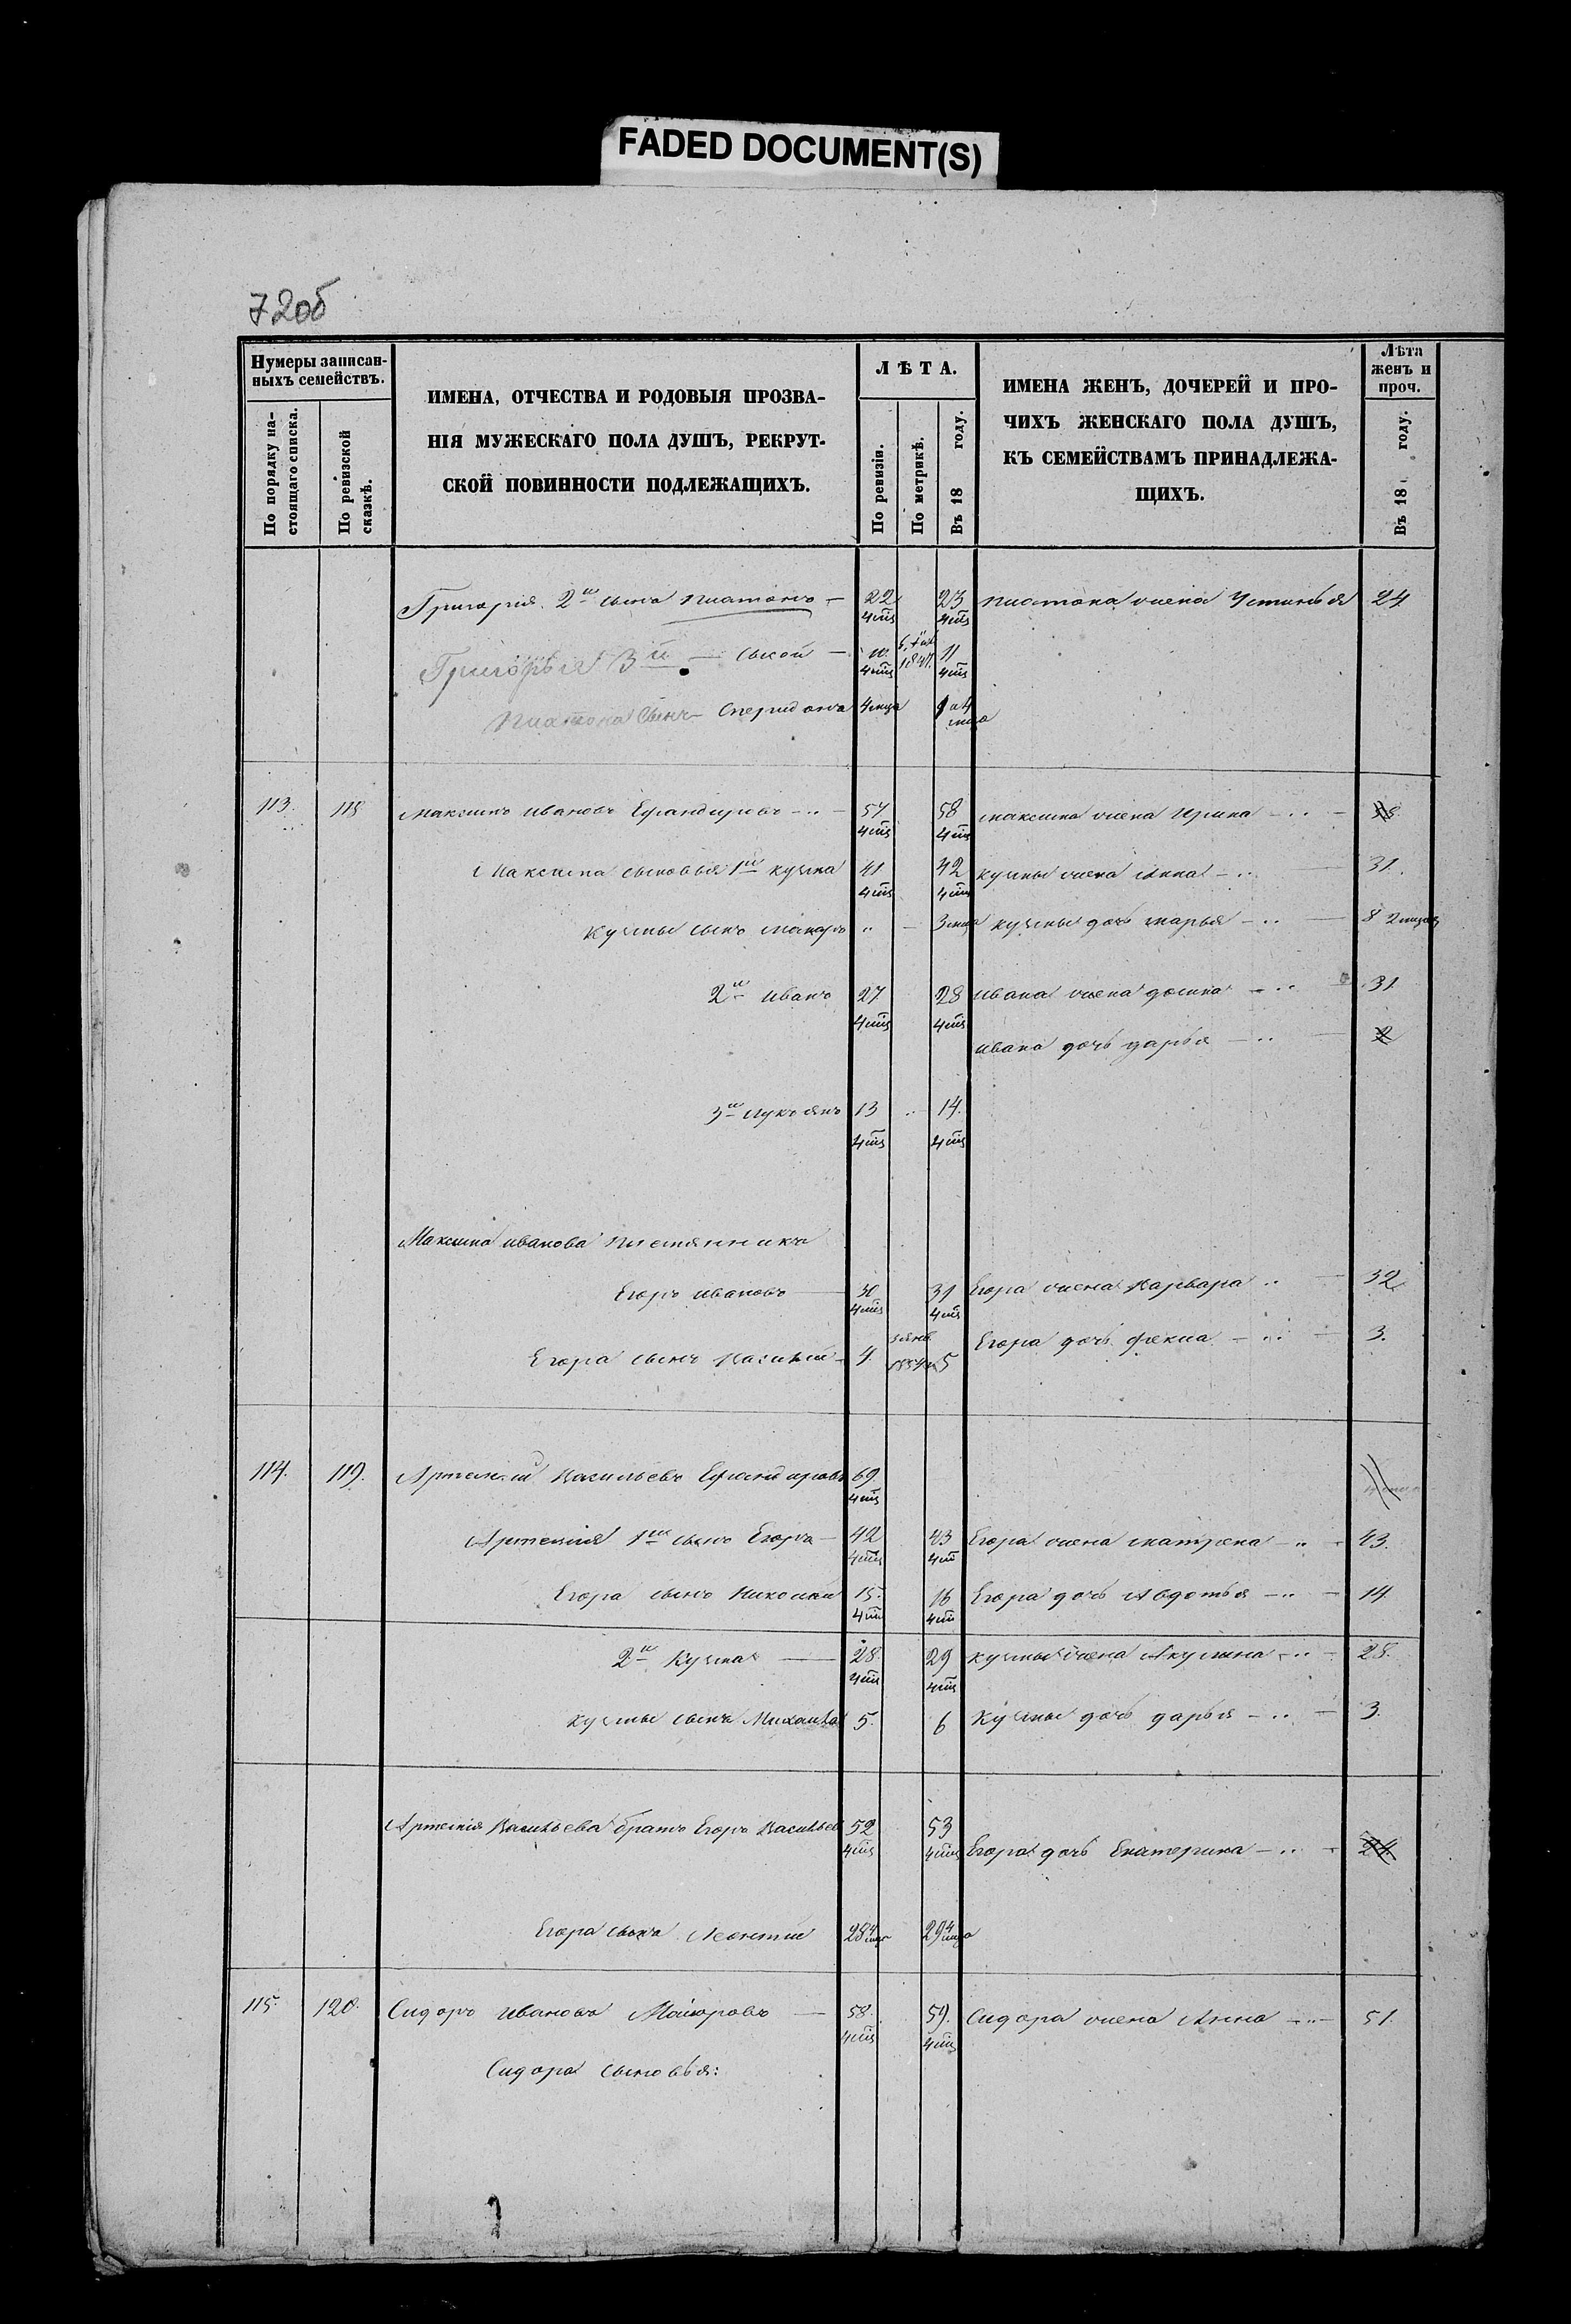 FADED DOCUMENT(S)
72об
Нумеры записан-
ныхъ семействъ.
По порядку на-
стоящаго списка.
По ревизской
сказкѣ.
ИМЕНА, ОТЧЕСТВА И РОДОВЫЯ ПРОЗВА-
НІЯ МУЖЕСКАГО ПОЛА ДУШЪ, РЕКРУТ-
СКОЙ ПОВИННОСТИ ПОДЛЕЖАЩИХЪ.
ЛѢТА.
По ревизіи.
По метрикѣ.
Въ 18 году.
ИМЕНА ЖЕНЪ, ДОЧЕРЕЙ И ПРО-
ЧИХЪ ЖЕНСКАГО ПОЛА ДУШЪ,
КЪ СЕМЕЙСТВАМЪ ПРИНАДЛЕЖА-
ЩИХЪ.
Лѣта
женъ и
проч.
Въ 18 году.
Григорія 2й сынъ Платонъ 22 23 Платона жена Устинья 24
Григорья 3й 11
Платона сынъ Спиридонъ
113. 118 Максимъ Ивановъ 57 58 Максима жена Ирина
Максима сыновья 1й Кузма 41 42 Кузмы жена Анна 31.
Кузмы сынъ Макаръ Кузмы дочь Марья 8
2й Иванъ 27 28 Ивана жена Домна 31
Ивана дочь Дарья 2
3й Лукоянъ 13 14.
Максима Иванова племянникъ
Егоръ Ивановъ 30 31 Егора жена Варвара 32
Егора сынъ Василій 4. 5 Егора дочь Фекла 3.
114. 119. Артемій Васильевъ 69
Артемія 1й сынъ Егоръ 42 43 Егора жена Матрена 43.
Егора сынъ Николай 15. 16 Егора дочь Авдотья 14
2й Кузма 28 29 Кузмы жена Акулина 28.
Кузмы сынъ Михаила 5. 6 Кузмы дочь Дарья 3.
Артемія Васильева братъ Егоръ Васильев 52 53
Егора дочь Екатерина
Егора сынъ Леонтій 28 29
115. 120. Сидоръ Ивановъ Маіоровъ 58. 59. Сидора жена Анна 51.
Сидора сыновья: